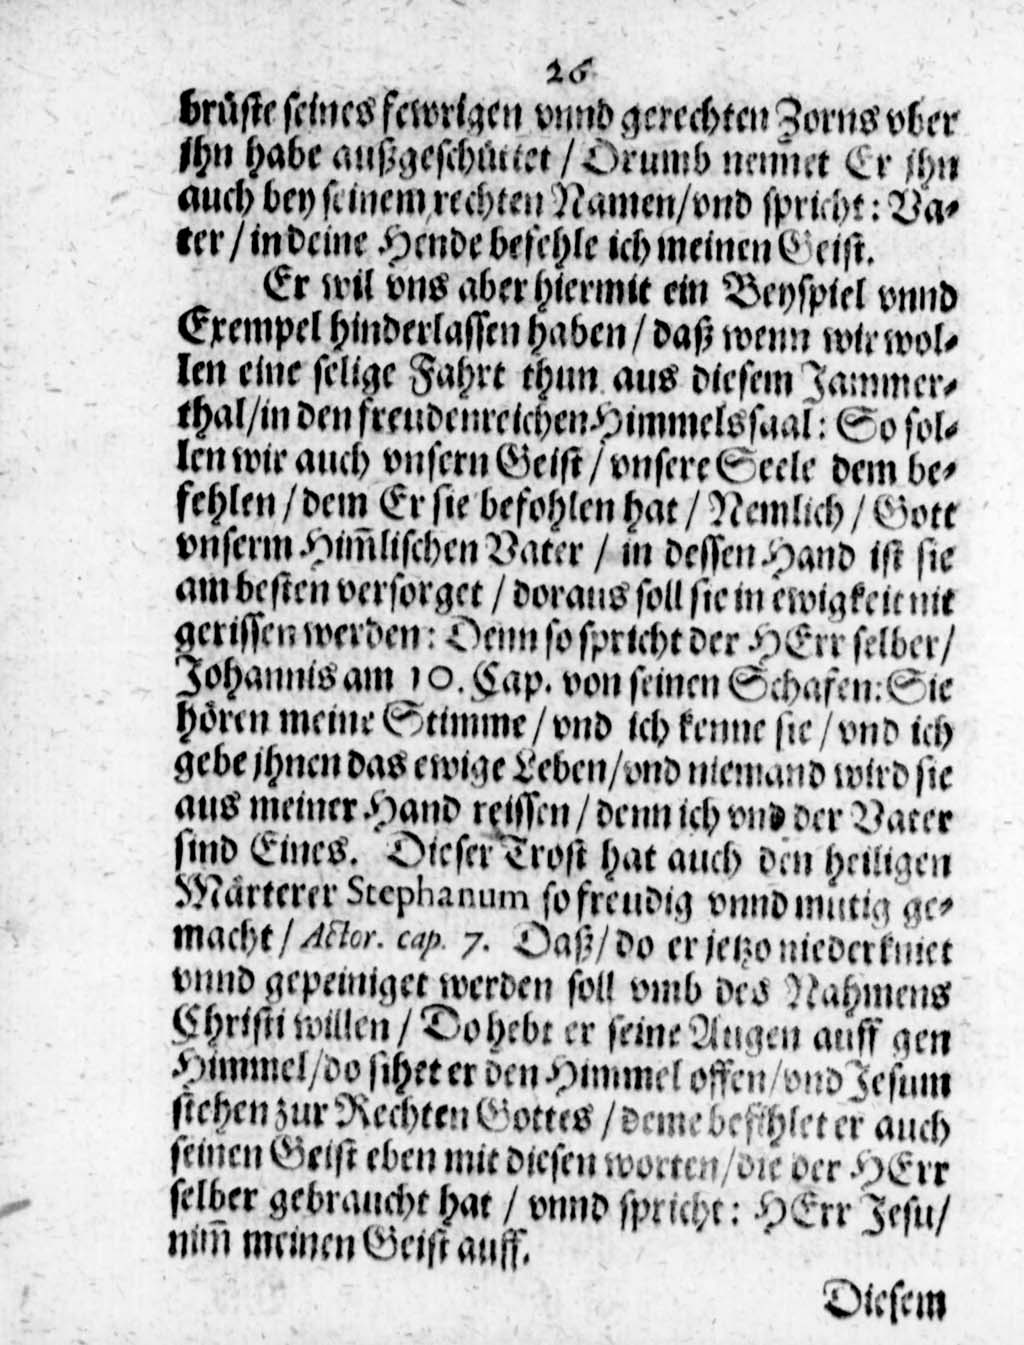 26
brüste seines fewrigen vnnd gerechten Zorns vber
jhn habe außgeschüttet / Drumb nennet Er jhn
auch bey seinem rechten Namen/vnd spricht: Va-
ter / in deine Hende befehle ich meinen Geist.
Er wil vns aber hiermit ein Beyspiel vnnd
Exempel hinderlassen haben / daß wenn wir wol-
len eine selige Fahrt thun aus diesem Jammer-
thal/in den freudenreichen Himmelssaal: So sol-
len wir auch vnsern Geist / vnsere Seele dem be-
fehlen / dem Er sie befohlen hat / Nemlich / Gott
vnserm Him̃lischen Vater / in dessen Hand ist sie
am besten versorget / doraus soll sie in ewigkeit nit
gerissen werden: Denn so spricht der HErr selber/
Johannis am 10. Cap. von seinen Schafen: Sie
hören meine Stimme / vnd ich kenne sie / vnd ich
gebe jhnen das ewige Leben/vnd niemand wird sie
aus meiner Hand reissen / denn ich vnd der Vater
sind Eines. Dieser Trost hat auch den heiligen
Märterer Stephanum so freudig vnnd mutig ge-
macht / Actor. cap. 7. Daß/ do er jetzo niederkniet
vnnd gepeiniget werden soll vmb des Nahmens
Christi willen / Do hebt er seine Augen auff gen
Himmel/do sihet er den Himmel offen/vnd Jesum
stehen zur Rechten Gottes / deme befihlet er auch
seinen Geist eben mit diesen worten/die der HErr
selber gebraucht hat / vnnd spricht: HErr Jesu/
nim̃ meinen Geist auff.
Diesem